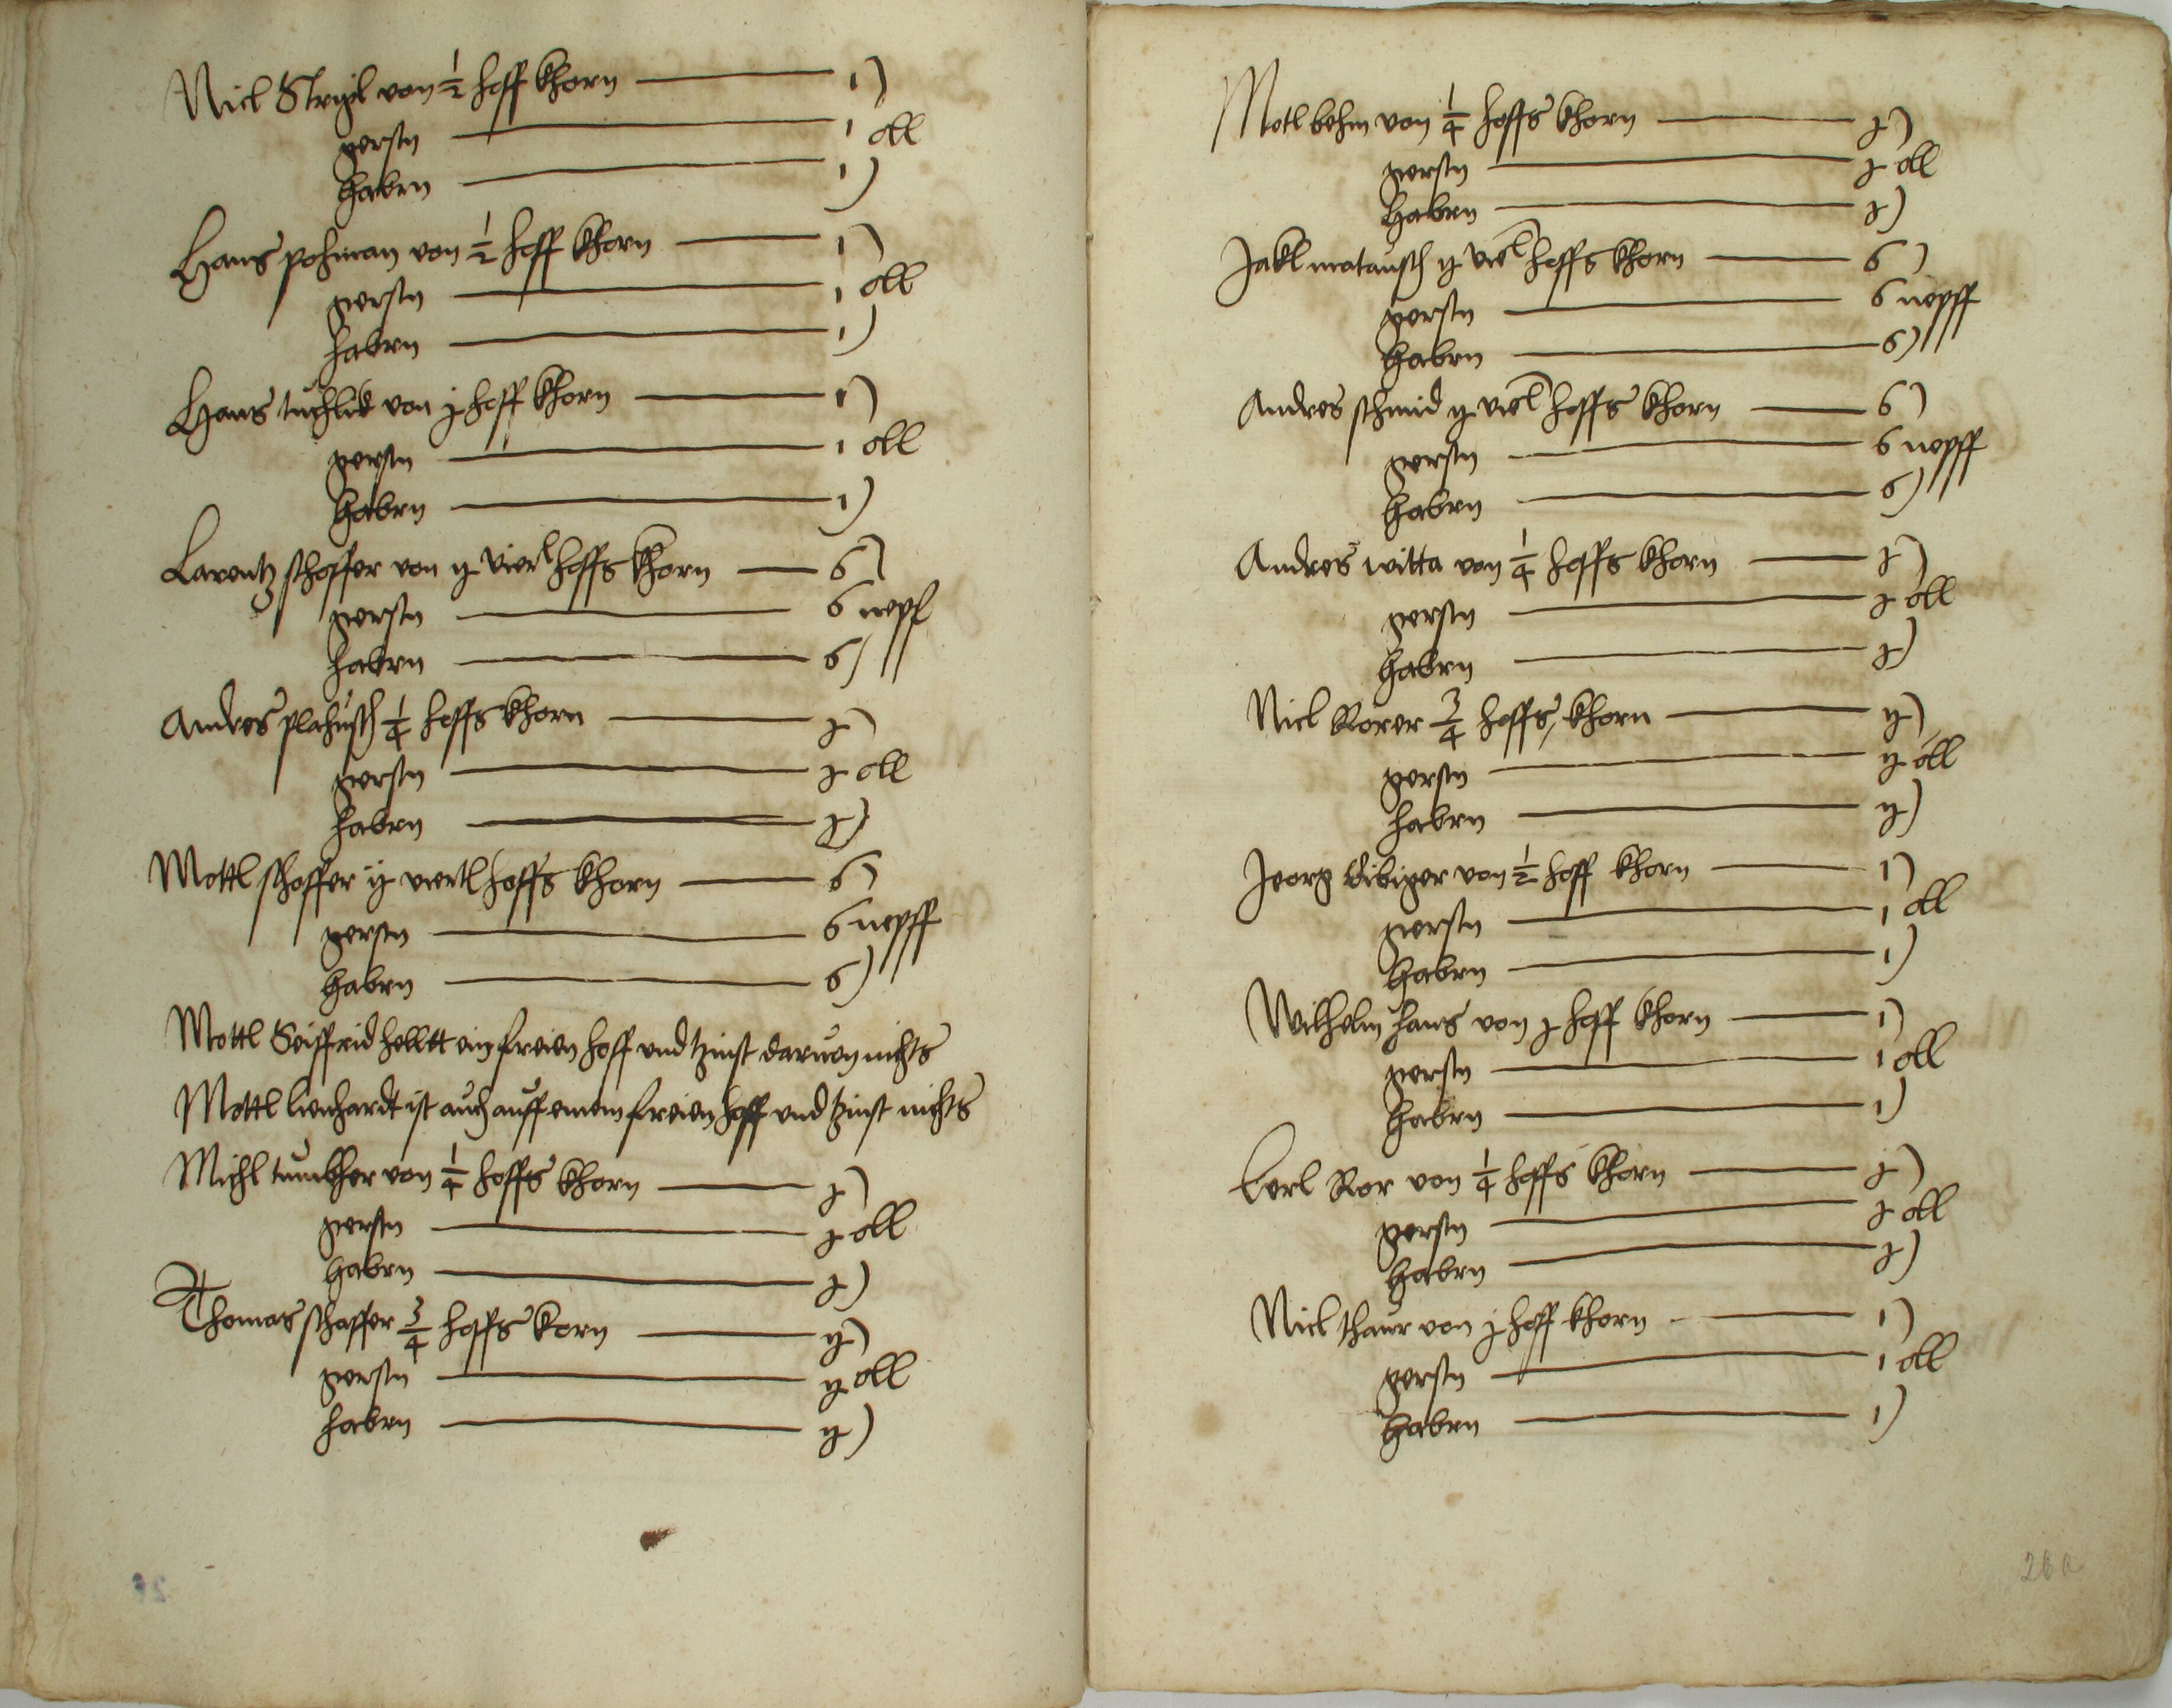 Nicl Strigil von ½ hoff khorn — 1)
gerstn — 1 oll
habrn — 1)
Hans pohman von ½ hoff khorn — 1)
gerstn — 1 oll
habrn — 1)
Hans tuchlik von j hoff khorn — 1)
gerstn — 1 oll
habrn — 1)
Larentz schoffer von ij vierl hoffs khorn — 6)
gerstn — 6 nepf
habrn — 6)
Andres plahusch ¼ hoffs khorn — j)
gerstn — j oll
habrn — j)
Mottl schoffer ij viertl hoffs khorn — 6)
gerstn — 6 nepff
habrn — 6)
Mottl Seiffrid helltt ein freien hoff und tzinst daruon nichts
Mottl lienhardt ist auch auff einem freien hoff und tzinst nichts
Michl tumkher von ¼ hoffs khorn — j)
gerstn — j oll
habrn — j)
Thomas schaffer ¾ hoffs korn — ij)
gerstn — ij oll
habrn — ij)
Motl behm von ¼ hoffs khorn — j)
gerstn — j oll
habrn — j)
Jakl matausch ij viel hoffs khorn — 6)
gerstn — 6 nepff
habrn — 6)
Andres schmid ij viel hoffs khorn — 6)
gerstn — 6 nepff
habrn — 6)
Andres witta von ¼ hoffs khorn — j)
gerstn — j oll
habrn — j)
Nicl Rorer ¾ hoffs, khorn — ij)
gerstn — ij oll
habrn — ij)
Jeorg Bibiger von ½ hoff khorn — 1)
gerstn — 1 oll
habrn — 1)
Wilhelm hans von j hoff khorn — 1)
gerstn — 1 oll
habrn — 1)
Lerl Ror von ¼ hoffs khorn — j)
gerstn — j oll
habrn — j)
Nicl thaur von j hoff khorn — 1)
gerstn — 1 oll
habrn — 1)
26a